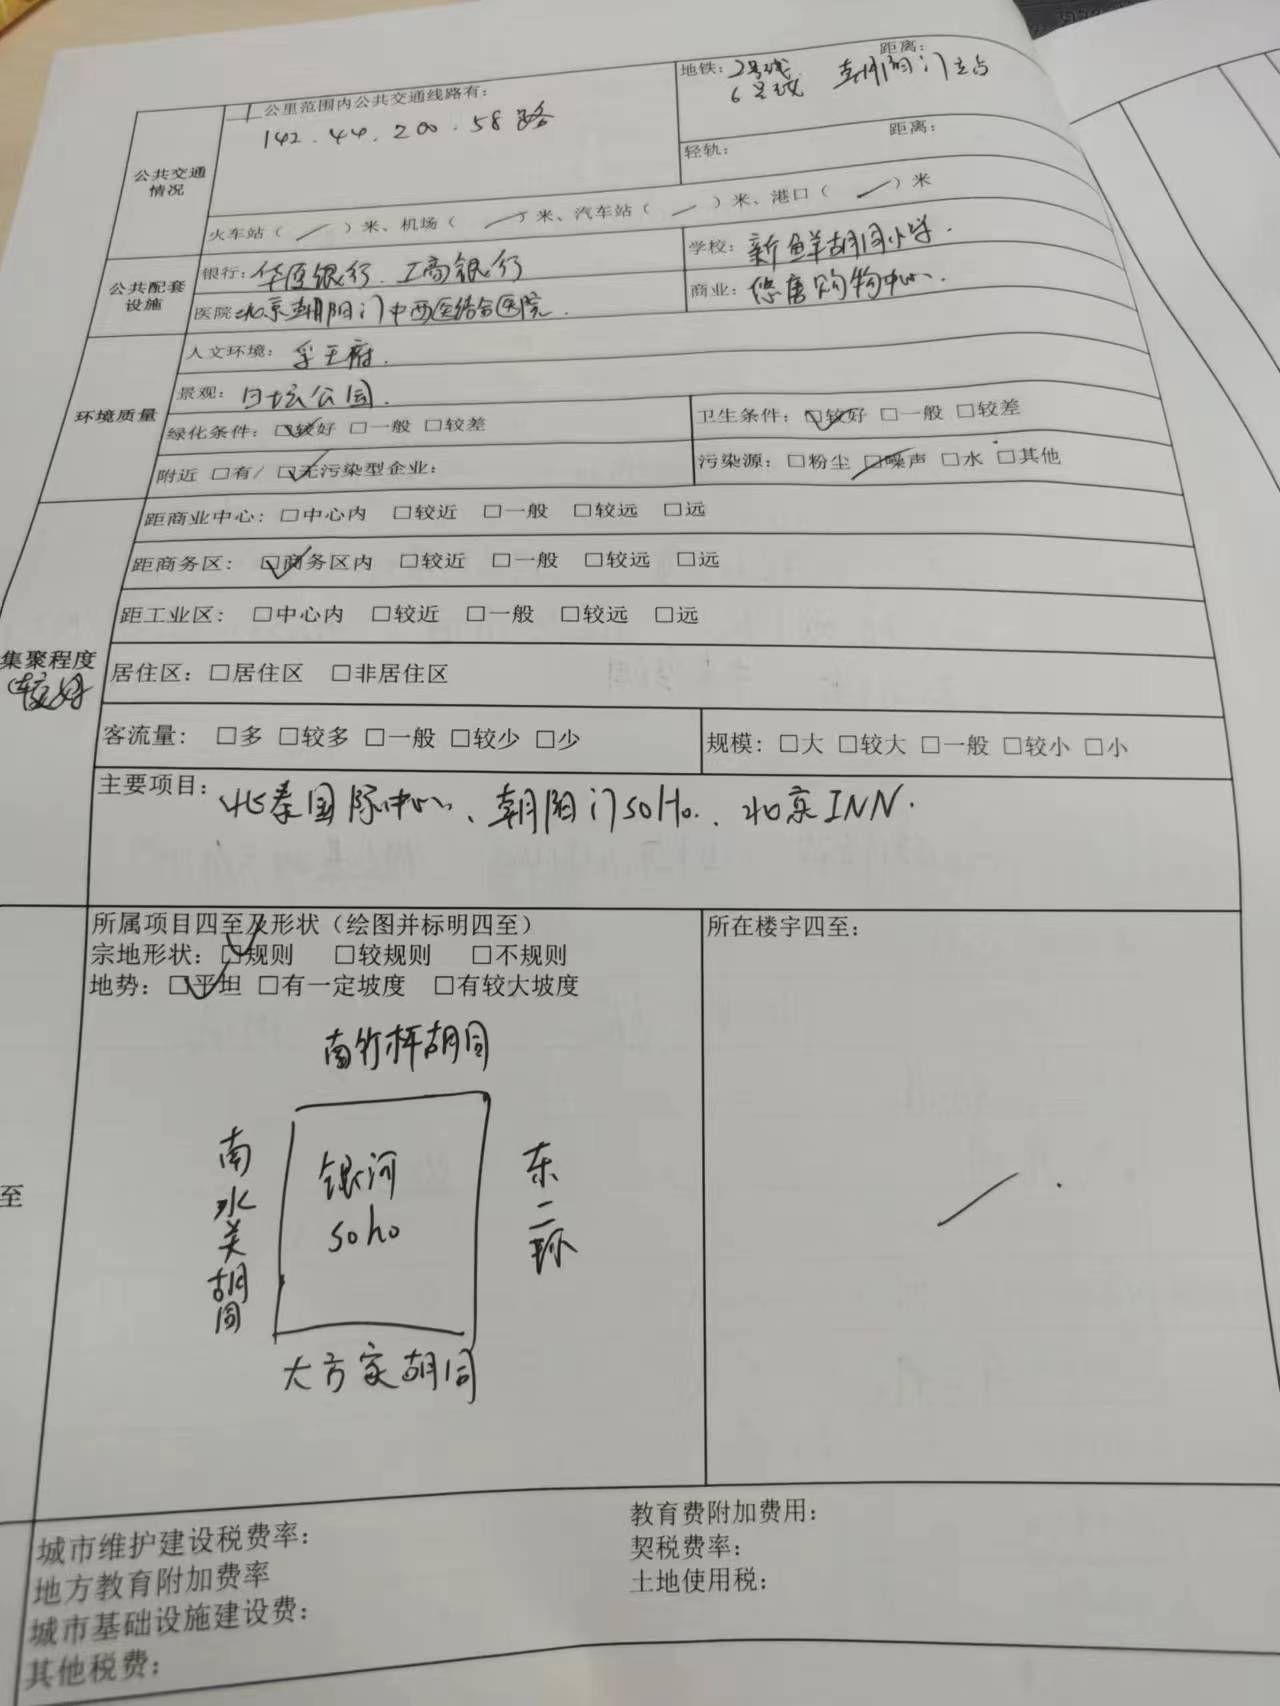 公里范围内公共交通线路有：
142.44.200.58路
地铁：2号线
6号线
距离：
朝阳门站
轻轨：
距离：
公共交通
情况
火车站（／）米、机场（／）米、汽车站（／）米、港口（／）米
公共配套
设施
银行：华夏银行.工商银行
学校：新鲜胡同小学.
医院：北京朝阳门中西医结合医院.
商业：悠唐购物中心.
环境质量
人文环境：孚王府.
景观：日坛公园.
绿化条件：☑较好 □一般 □较差
卫生条件：☑较好 □一般 □较差
附近 □有/ ☑无污染型企业：
污染源：□粉尘 ☑噪声 □水 □其他
集聚程度
较好
距商业中心：□中心内 □较近 □一般 □较远 □远
距商务区：☑商务区内 □较近 □一般 □较远 □远
距工业区：□中心内 □较近 □一般 □较远 □远
居住区：□居住区 □非居住区
客流量：□多 □较多 □一般 □较少 □少
规模：□大 □较大 □一般 □较小 □小
主要项目：北泰国际中心、朝阳门SOHO.、北京INN.
至
所属项目四至及形状（绘图并标明四至）
宗地形状：☑规则 □较规则 □不规则
地势：☑平坦 □有一定坡度 □有较大坡度
南竹杆胡同
南水关胡同
银河
soho
东二环
大方家胡同
所在楼宇四至：
／.
城市维护建设税费率：
教育费附加费用：
地方教育附加费率
契税费率：
城市基础设施建设费：
土地使用税：
其他税费：